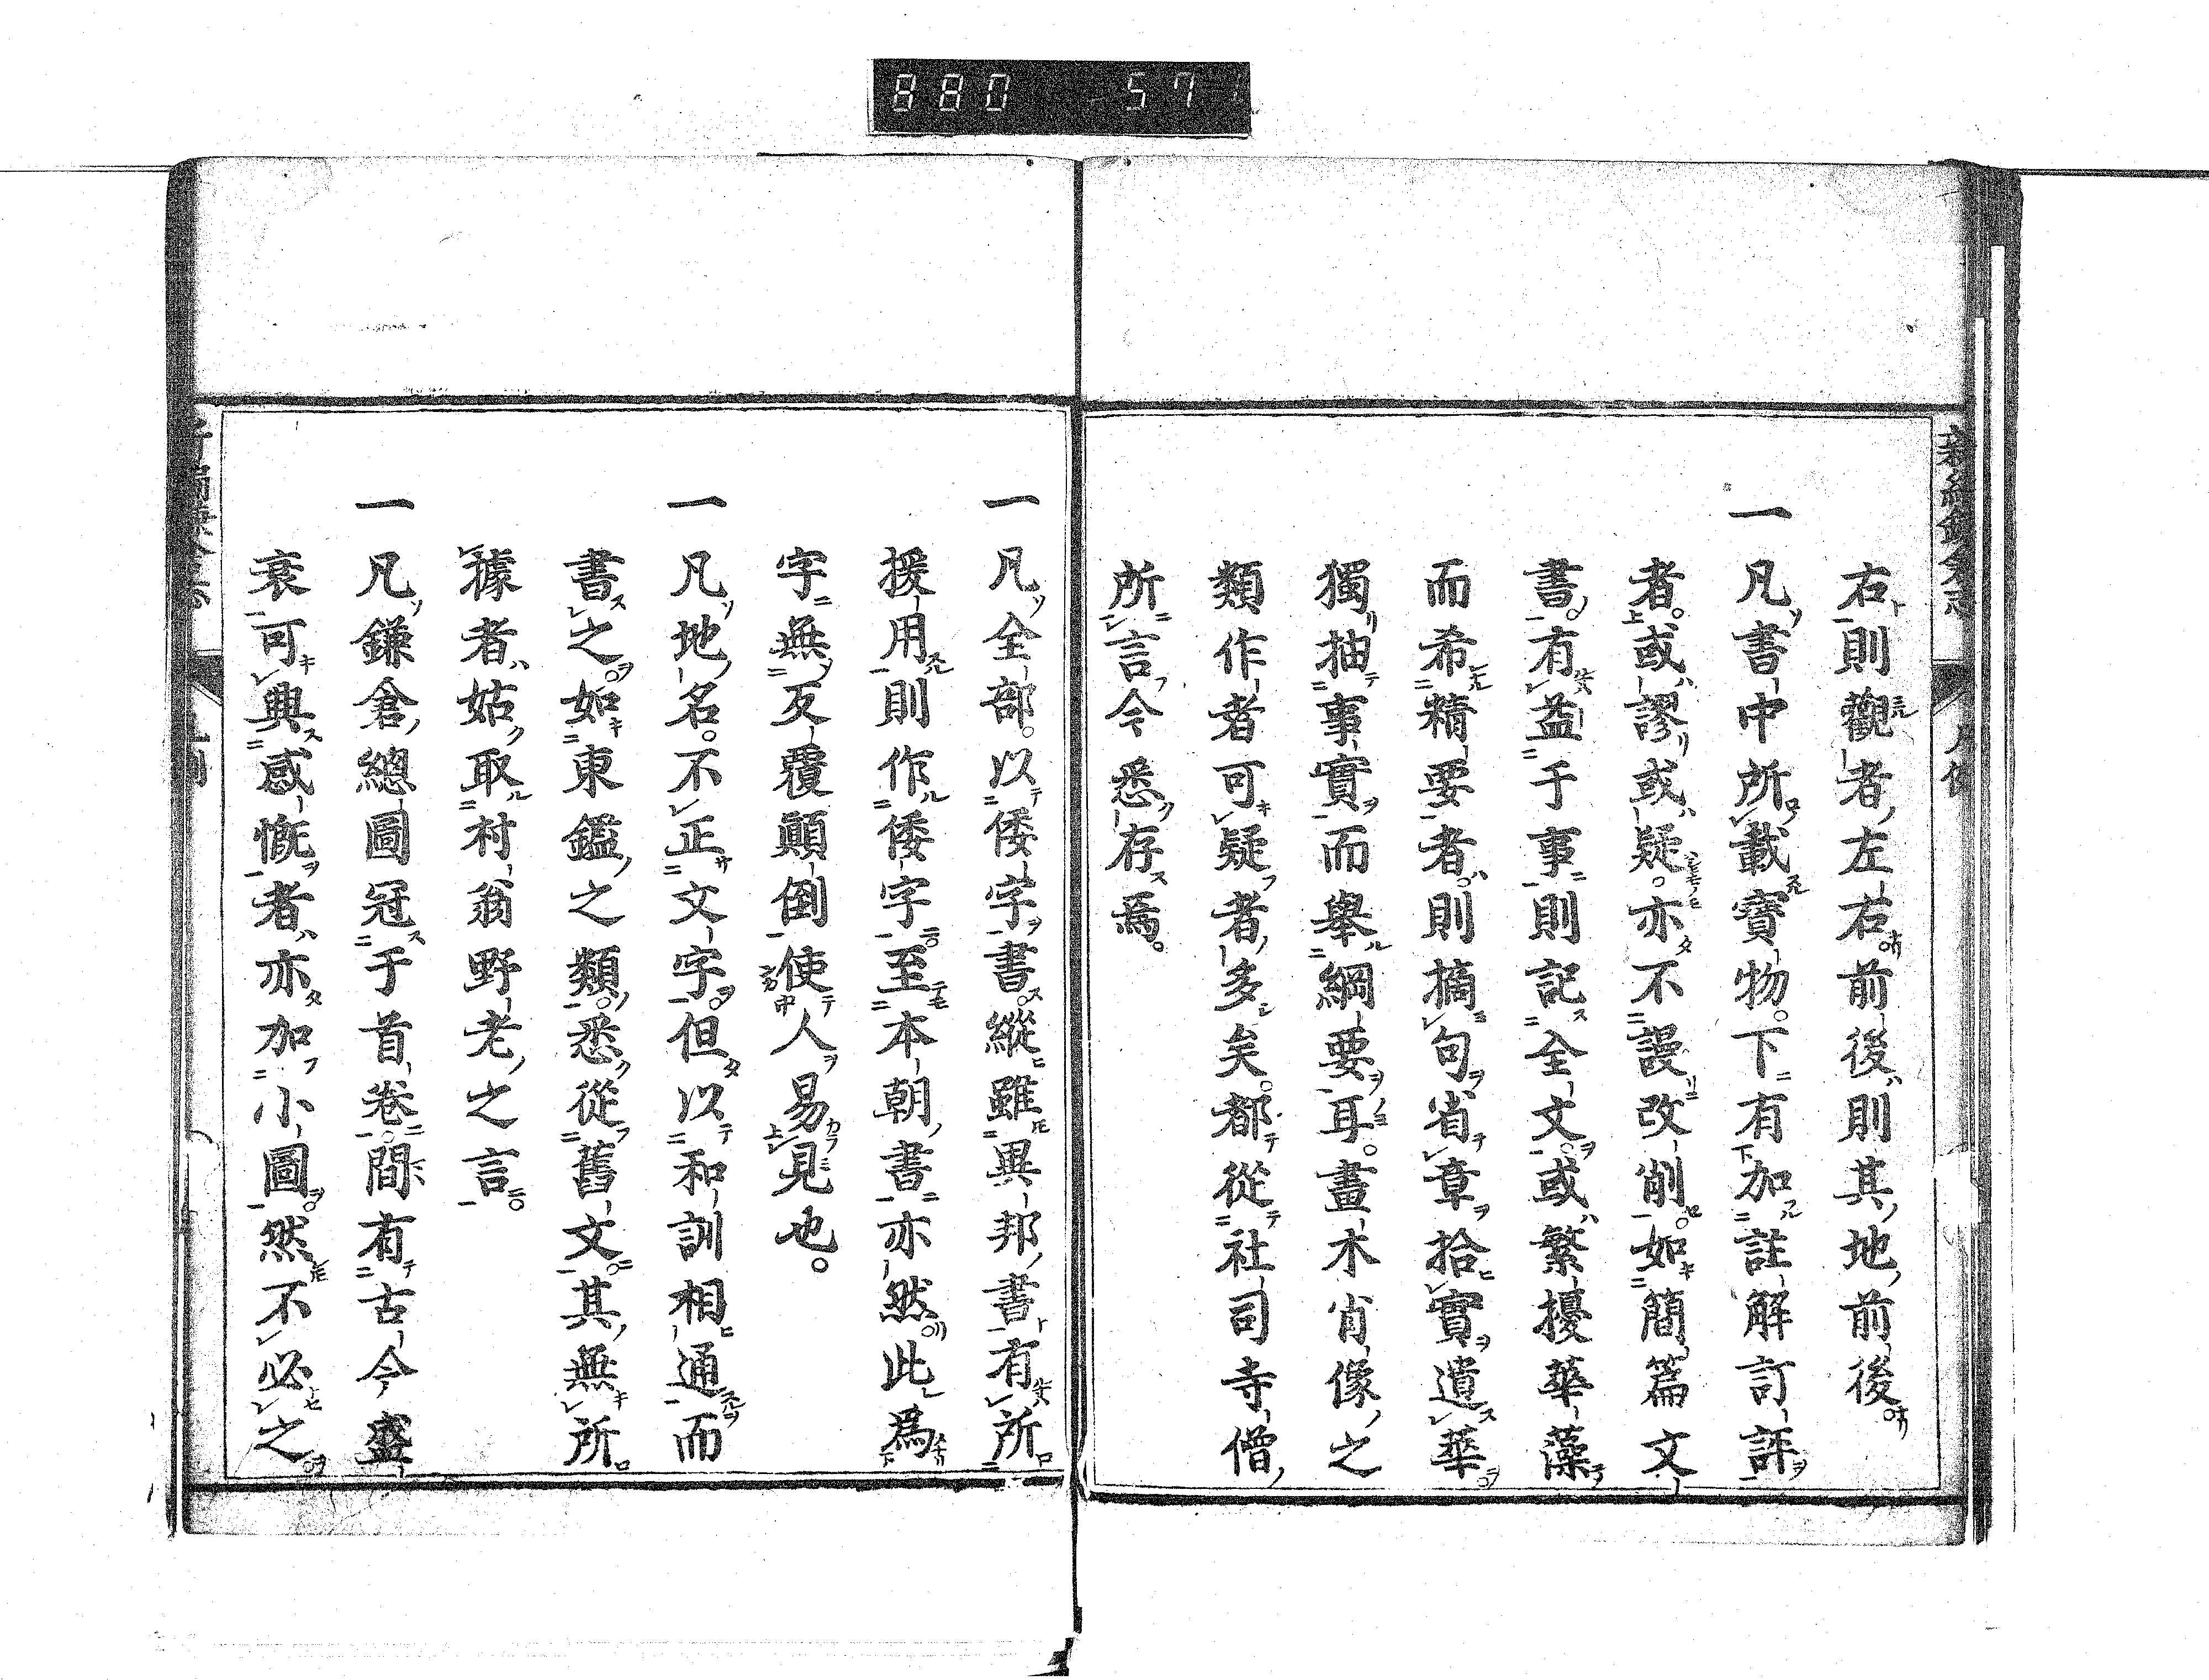 880 571
右則觀者左右前後則其地前後
一凡書中所載寶物。下有加註解訂評
者。或謬或疑。亦不謾改削。如簡篇文
書有益于事則記全文。或繁擾華藻
而希精要者。則摘句省章拾實遺華。
獨抽事實而舉綱要耳。畫木肖像之
類作者可疑者多矣。都從社司寺僧
所言今悉存焉。
一凡全部。以倭字書。縱雖異邦書有所
援用則作倭字。至本朝書亦然。此爲
字無反覆顚倒使人易見也。
一凡地名。不正文字。但以和訓相通而
書之。如東鑑之類。悉從舊文。其無所
據者姑取村翁野老之言。
一凡鎌倉總圖冠于首卷。間有古今盛
衰可興感慨者亦加小圖。然不必之。